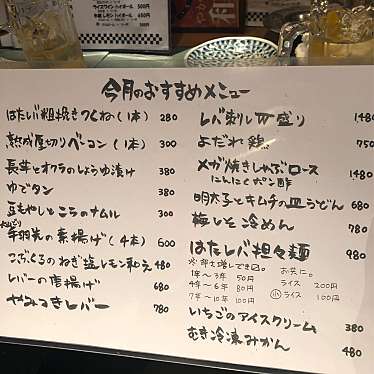 ライスワイン ハイボール 500円
今月のおすすめメニュー
はたレバ粗挽きつくね(1本) 280
熟成厚切りベーコン(1本) 300
長芋とオクラのしょうゆ漬け 380
ゆでタン 380
豆もやしとニラのナムル 300
手羽先の素揚げ(4本) 600
こぶくろのねぎ塩レモン和え 480
レバーの唐揚げ 680
やみつきレバー 780
レバ刺し 盛り 1480
よだれ鶏 750
メガ焼きしゃぶロース 1480
にんにくポン酢
明太子とキムチの皿うどん 680
梅しそ冷めん 780
はたレバ担々麺 980
1年〜3年 50円
4年〜6年 80円
7年〜10年 100円
お共に。
ライス 200円
小ライス 100円
いちごのアイスクリーム 380
むき冷凍みかん 480